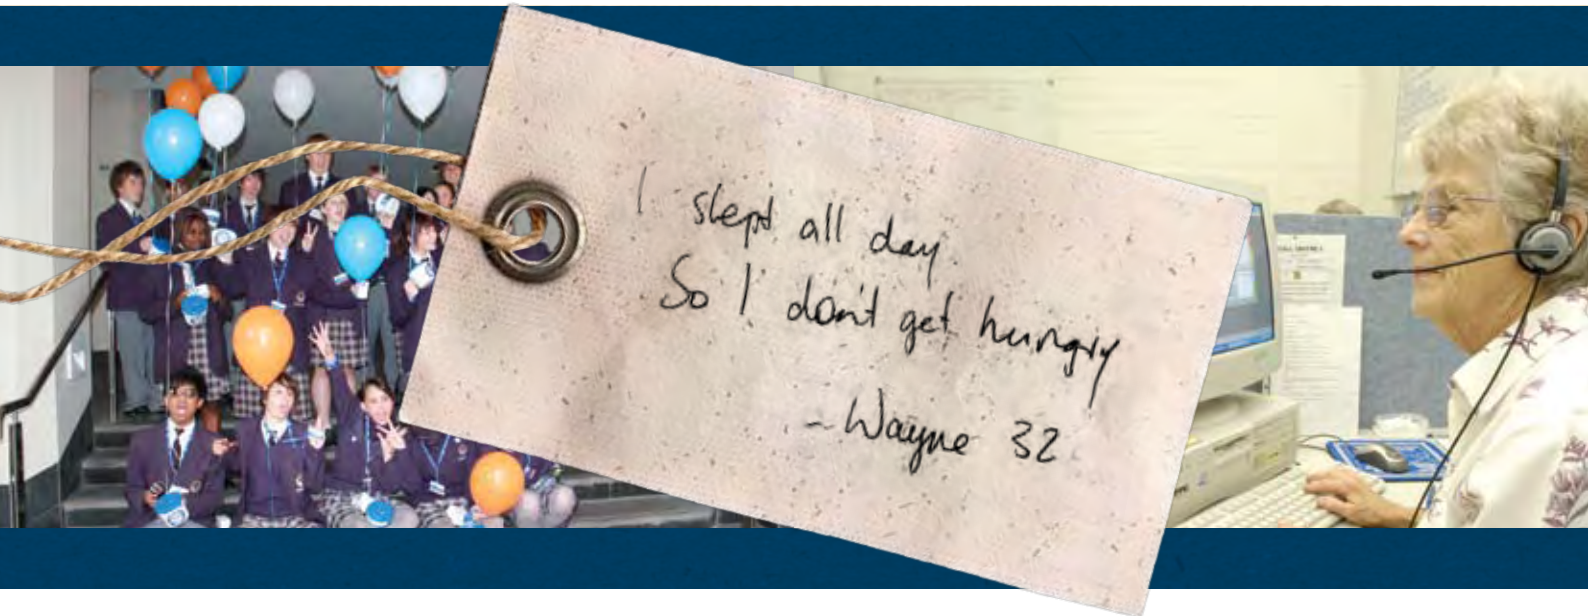 I slept all day.
So I don't get hungry
~ Wayne 32